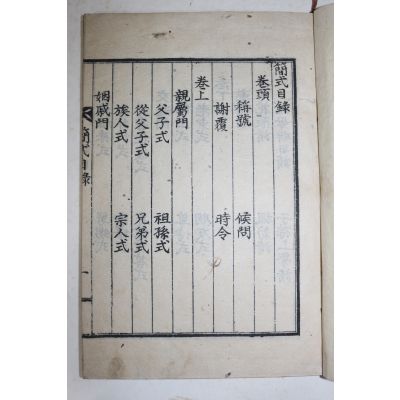 簡式目錄
卷頭
稱號 候問
謝覆 時令
卷上
親屬門
父子式 祖孫式
從父子式 兄弟式
族人式 宗人式
姻戚門
簡式目錄
一